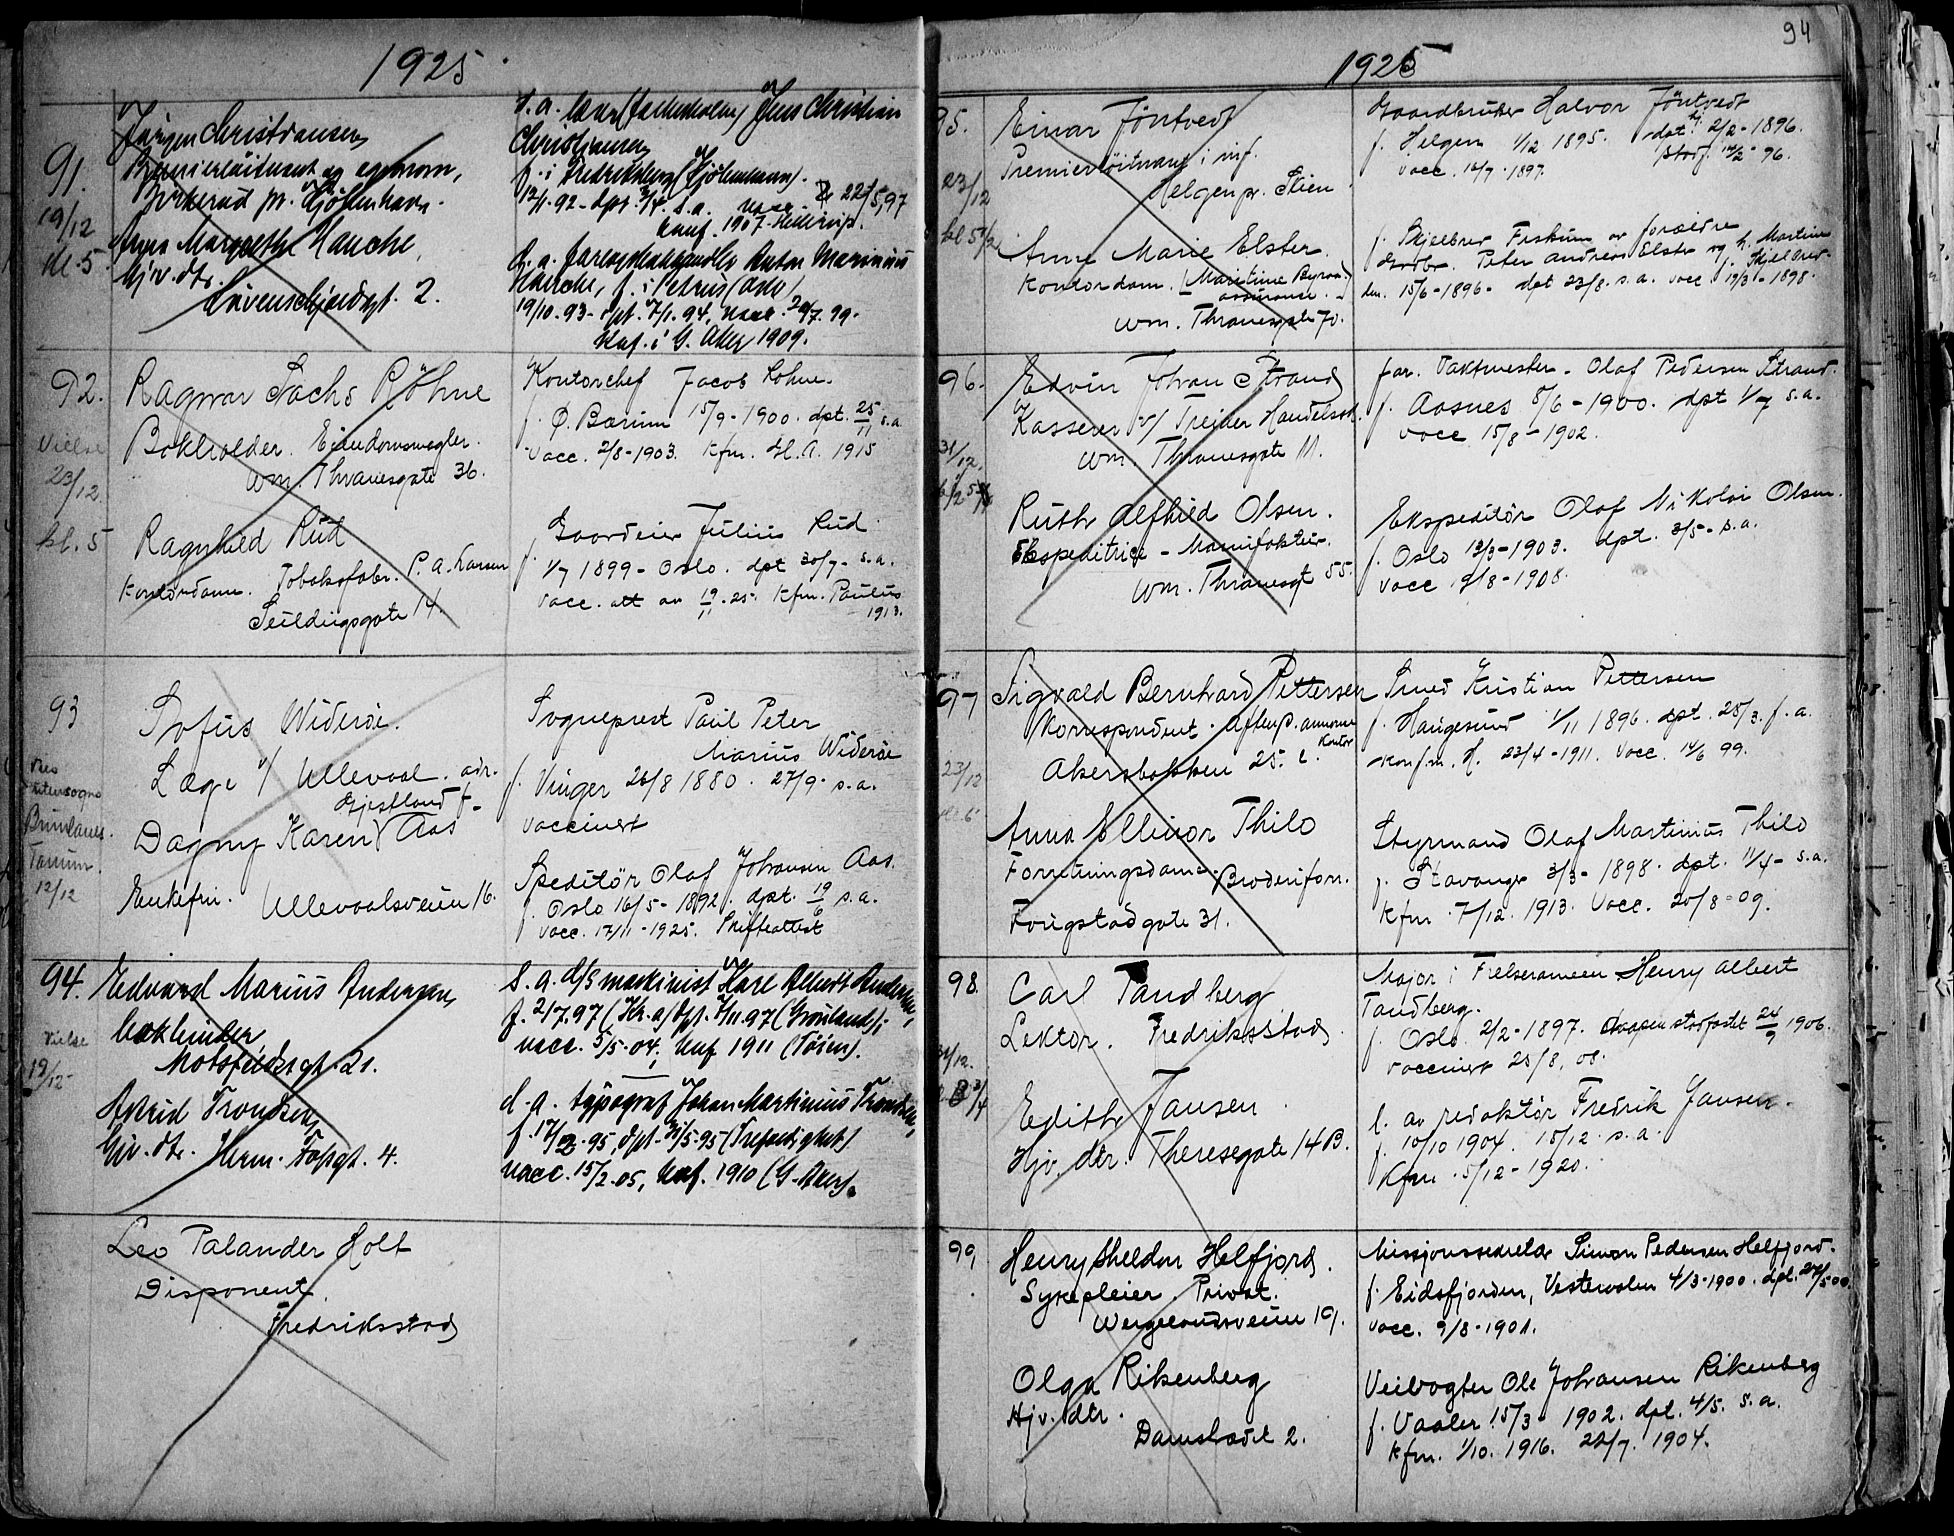 1925
91.
19/12
kl. 5
Jørgen Christiansen
Premierløitnant og
Birkerød pr. Kjøbenhavn.
Anna Margrethe Hauche,
hjv. dtr.
Løvenskjoldsgt. 2.
s. a. Jens Christian
Christiansen
f. i Fredriksberg (Kjøbenhavn).
konf. 1907 Hellerup.
d. a. Anton Marinius
Hauche, f. i Petrus (Oslo)
19/10-93- dpt. 7/1.94, vacc.
Knf. i G. Aker 1909.
92.
Vielse
23/12
kl. 5
Ragnar Sachs Röhne
Bokholder. Eiendomsmegler.
Wm. Thranesgate 36.
Ragnhild Rud
Kontordame. Tobaksfabr. P. A. Larsen
Seildugsgate 14
Kontorchef Jacob Röhne.
f. Ø. Bærum 15/9-1900. dpt. 25/11 s.a.
Vacc. 2/8-1903. Kfm. Hl. A. 1915
Gaardeier Julius Rud
f. 1/7 1899 - Oslo. dpt 30/7- s.a.
Vacc. att av 19/11.25. Kfm. Paulus
1913.
93
Tanum.
12/12
Sofus Widerøe.
Læge v/ Ullevaal. adr.
Dagny Karen Aas
Enkefru. Ullevaalsveien 16.
Sogneprest Paul Peter
Marius Widerøe
f. Vinger 26/8 1880. 27/9. s.a.
vaccinert
Speditør Olaf Johansen Aas.
f. Oslo 16/5-1892. dpt. 19/6 s.a.
Vacc. 17/11-1925. Skifteattest
94.
Vielse
19/12
Edvard Marius Andersen,
bokbinder,
Motzfeldtsgt. 21.
Astrid Trondsen,
hjv. dtr. Herm. Fossgt. 4.
S. a. d/s maskinist Karl Albert Andersen,
f. 21/7.97 (Kr.a) dpt. 7/11.97 (Grønland);
vacc. 5/5-04, knf 1911 (Tøien).
d. a. typograf Johan Martinius Trondsen,
(Trefoldighet)
vacc. 15/2.05, knf. 1910 (G. Aker).
Leo Palander Holt
Disponent.
Fredriksstad
94
1925
95.
23/12
Einar Jöntvedt
Premierløitnant i inf.
Helgen pr. Skien
Anne Marie Elster
Kontordam.
Wm. Thranesgate 70.
Gaardbruker Halvor Jöntvedt
f. Helgen 1/12 1895. dpt 2/2-1896.
stadf. 14/2-96.
Vacc. 14/7-1897.
f. Skjelbred Fiskum av forældre
Grdbr. Peter Andreas Elster og h. Martine
15/6-1896- dpt 23/8. s.a. vacc 1898.
96.
31/12
Edvin Johan Strand
Kasserer v/ Treider Handelssk.
Wm. Thranesgate 11.
Ruth Alfhild Olsen.
Ekspeditrice - Manufaktur.
Wm. Thranesgt 55.
far. Vaktmester - Olaf Pedersen Strand.
f. Aasnes 8/6-1900. dpt 1/7 s.a.
Vacc 15/8-1902.
Ekspeditør Olaf Nikolai Olsen.
f. Oslo 13/3-1903. dpt. 3/5- s.a.
Vacc 9/8-1908.
97
23/12
Sigvald Bernhard Pettersen
Korrespondent. Aftenp. annonce
kontor
Akersbakken 25.
Anna Ellinor Thilo
Forretningsdame. Broderiforr.
Fougstadgate 31.
Smed Kristian Pettersen
f. Haugesund 1/11 1896. dpt. 25/3. f.a.
konfm. H. 23/4-1911. Vacc. 14/6 99.
Styrmand Olaf Martinius Thilo
f. Stavanger 3/3-1898. dpt. 11/4- s.a.
Kfm. 7/12. 1913. Vacc. 20/8-09.
98.
31/12.
Carl Tandberg
Lektor. Fredriksstad
Edith Jansen
Hjv. dtr. Theresegate 14 B.
Major i Frelsesarmeen Henry Albert
Tandberg.
f. Oslo 2/2-1897. daapen stadfestet 24/9 1906.
vaccinert 25/8. 08.
f. av redaktør Fredrik Jansen.
f. 10/10 1904. 15/12. s.a.
Kfm. 5/12-1920.
99.
Henry Sheldon Helfjord.
Sykepleier. Privat.
Wergelandsveien 19.
Olga Rikenberg
Hjv. dtr.
Damstrædet 2.
Missjonssekretær Simon Pedersen Helfjord.
f. Eidsfjorden, Vesteraalen 4/3-1900. dpt. 27/5 00
Vacc. 9/8-1901.
Veivogter Ole Johansen Rikenberg
f. Vaaler 15/3- 1902. dpt. 4/5. s.a.
Kfm. 1/10. 1916. 22/7. 1904.